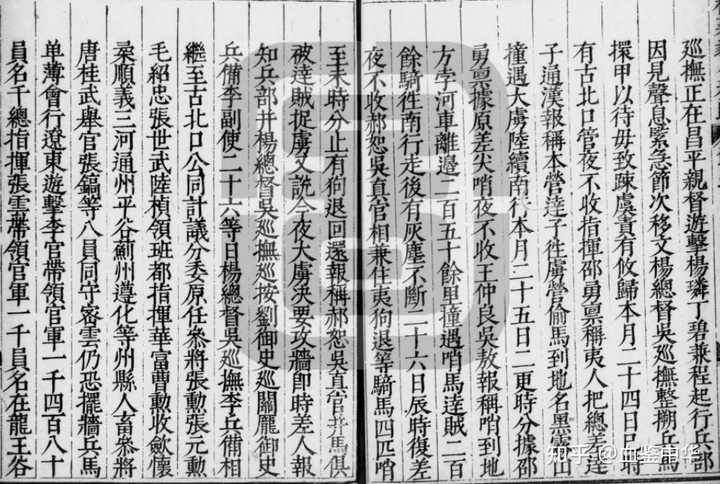 巡撫正在昌平親督遊擊楊璘丁碧兼程起行兵部
因見聲息緊急節次移文楊總督吳巡撫整搠兵馬
擐甲以待毋致踈虞責有攸歸本月二十四日巳時
有古北口管夜不收指揮邵勇禀稱夷人把總差達
子通漢報稱本營達子徃虜營偷馬到地名黑
撞遇大虜陸續南行本月二十五日二更時分據邵
勇禀據原差尖哨夜不收王仲良吳敖報稱哨到地
方字河車離邊二百五十餘里撞遇哨馬達賊二百
餘騎徃南行走後有灰塵不斷二十六日辰時復差
夜不收郝恕吳真官相兼住夷狗退等騎馬四匹哨
至未時分止有狗退回還報稱郝恕吳真官并馬俱
被達賊捉虜又說今夜大虜決要攻牆即時差人報
知兵部并楊總督吳巡撫巡按劉御史巡關龐御史
兵備李副使二十六等日楊總督吳巡撫李兵備相
繼至古北口公同計議分委原任參將張勲張元勲
毛紹忠張世武陸楨領班都指揮華富曹勲收斂懷
柔順義三河通州平谷薊州遵化等州縣人畜參將
唐桂武舉官張鎬等八員同守密雲仍恐擺牆兵馬
单薄會行遼東遊擊李官帶領官軍一千四百八十
員名千總指揮張雲帶領官軍一千員名在龍王谷
知乎 @血鉴中华